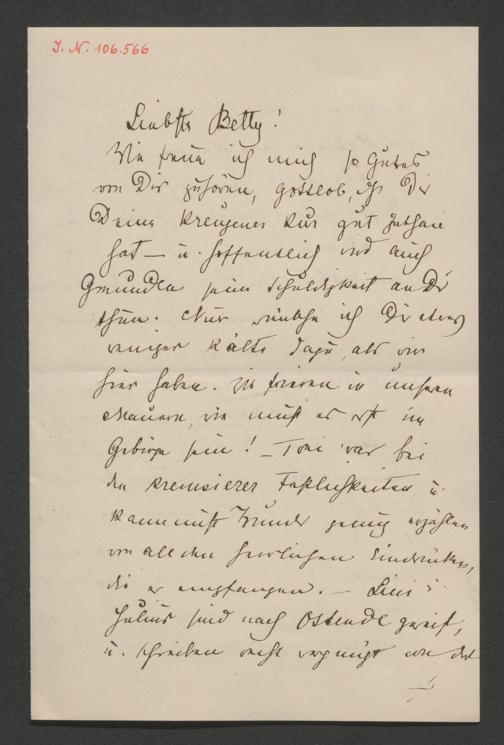 J. N. 106.566
Liebste Betty!
Wie freue ich mich so Gutes
von Dir zu hören, gottlob, daß Dir
Deine Kreuzener Kur gut gethan
hat — u. hoffentlich wird auch
Gmunden seine Schuldigkeit an Dir
thun. Nur wünsche ich Dir etwas
weniger Kälte dazu, als wir
hier haben. Wir frieren in unseren
Mauern, wie muß es erst im
Gebirge sein! — Toni war bei
den Kremsierer Festlichkeiten u.
kann nicht Wunder genug erzählen
von all den herrlichen Eindrücken,
die er empfangen. —
Julius sind nach Ostende gereist,
u. schreiben recht vergnügt von dort